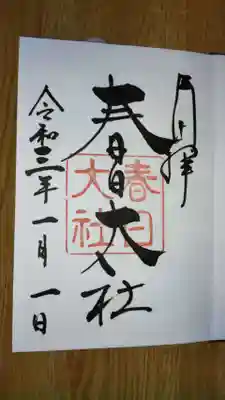 奉拝
春日大社
春日
大社
令和三年一月一日